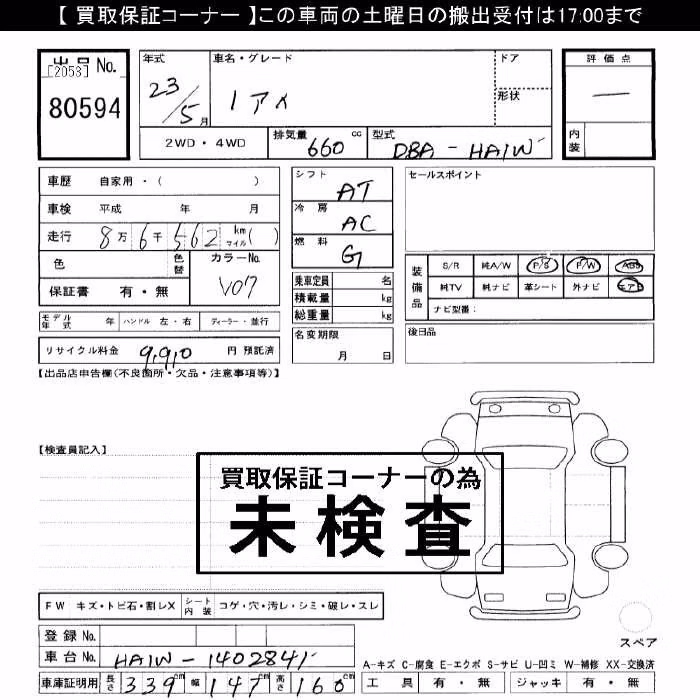 【 買取保証コーナー 】この車両の土曜日の搬出受付は17:00まで
出品 No.
[2053]
80594
年式 23/5月
車名・グレード
ドア
評価点
形状
内装
2WD・4WD
排気量 660 cc
型式 DBA-HA1W
車歴 自家用・( )
車検 平成 年 月
走行 8万6千562 km マイル( )
色
色替
カラーNo.
V07
保証書 有・無
モデル年式 年 ハンドル 左・右 ディーラー・並行
リサイクル料金 9,910 円 預託済
シフト AT
冷房 AC
燃料 G
乗車定員 名
積載量 kg
総重量 kg
名変期限
月 日
セールスポイント
装備品
S/R 純A/W P/S P/W ABS
純TV 純ナビ 革シート 外ナビ エアB
ナビ型番:
後日品
【出品店申告欄(不良箇所・欠品・注意事項等)】
【検査員記入】
買取保証コーナーの為
未検査
FW キズ・トビ石・割レX シート内装 コゲ・穴・汚レ・シミ・破レ・スレ
登録 No.
車台 No. HA1W-1402841
車庫証明用 長さ 339cm 幅 147cm 高さ 160cm
スペア
A-キズ C-腐食 E-エクボ S-サビ U-凹ミ W-補修 XX-交換済
工具 有・無 ジャッキ 有・無